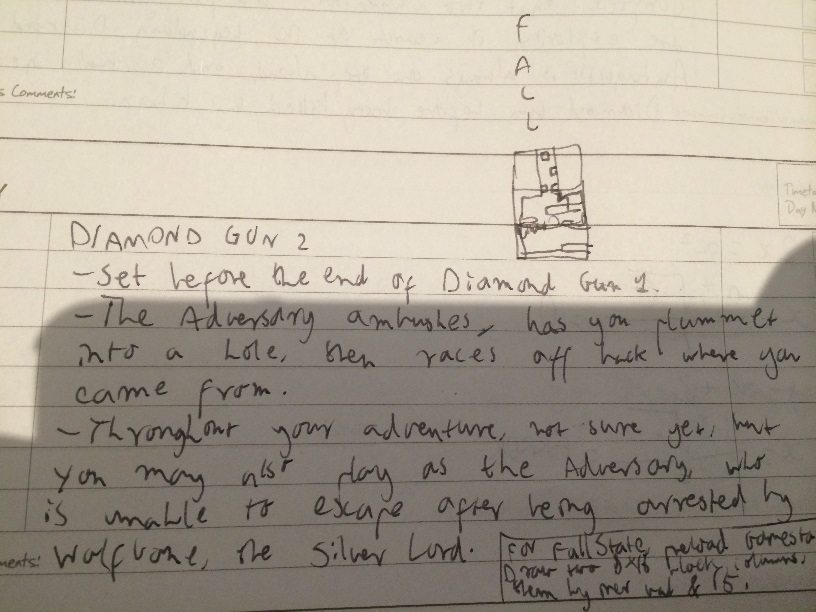 F
A
L
L
s Comments:
DIAMOND GUN 2
- Set before the end of Diamond Gun 1.
- The Adversary ambushes, has you plummet
into a hole, then races off back where you
came from.
- Throughout your adventure, not sure yet, but
you may also play as the Adversary, who
is unable to escape after being arrested by
Wolfbane, the Silver Lord.
ments:
For FallState, reload Gamesta
Draw two 8x16 block columns,
them by & 15.